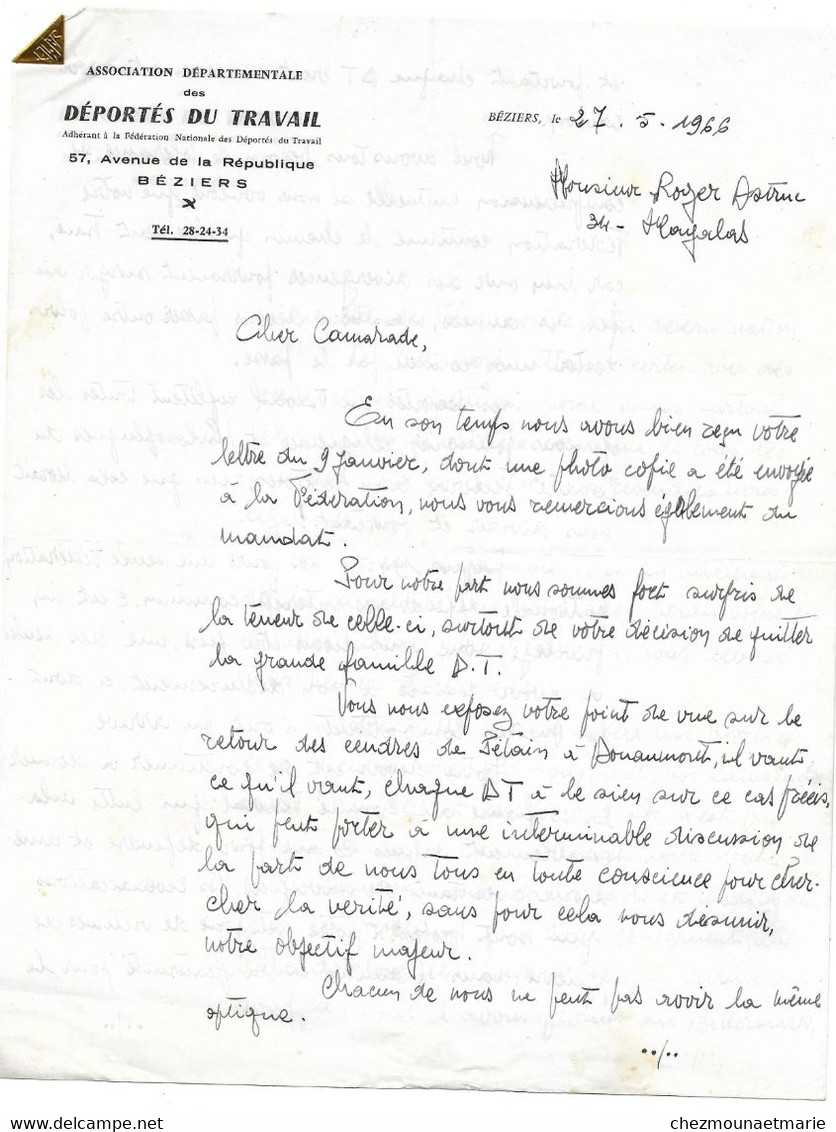 ASSOCIATION DÉPARTEMENTALE
des
DÉPORTÉS DU TRAVAIL
Adhérant à la Fédération Nationale des Déportés du Travail
57, Avenue de la République
BÉZIERS
Tél. 28-24-34
BÉZIERS, le 27-5-1966
Monsieur Roger Astruc
34- Magalas
Cher Camarade,
En son temps nous avons bien reçu votre
lettre du 9 Janvier, dont une photo copie a été envoyée
à la Fédération, nous vous remercions également du
mandat.
Pour notre part nous sommes fort surpris de
la teneur de celle-ci, surtout de votre décision de quitter
la grande famille D.T.
Vous nous exposez votre point de vue sur le
retour des cendres de Pétain à Douaumont, il vaut
ce qu'il vaut, chaque DT à le sien sur ce cas précis,
qui peut prêter à une interminable discussion de
la part de nous tous en toute conscience pour cher-
cher la verité, sans pour cela nous desunir,
notre objectif majeur.
Chacun de nous ne peut pas avoir la même
optique.
../..
chezmounaetmarie